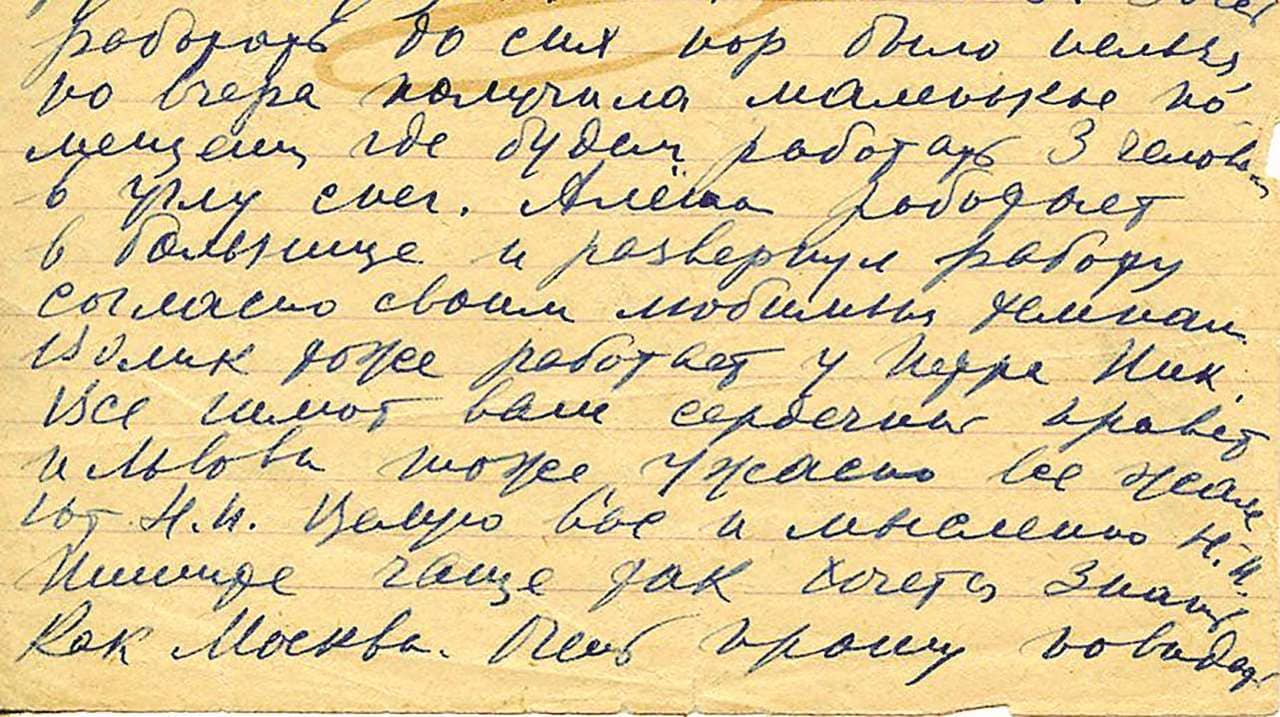 работать до сих пор было нельзя,
но вчера получила маленькое по-
мещение где будем работать 3 человека
в углу снег. Алёша работает
в больнице и развернул работу
согласно своим любимым темам.
Волик тоже работает у Петра Ник.
Все шлют вам сердечный привет
и Львовы тоже, ужасно все жале
ют Н.И. Целую Вас и мысленно Н.И.
Пишите чаще так хочется знать
как Москва. Очень прошу повидать